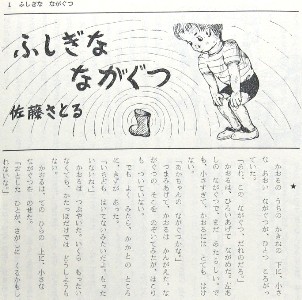 1 ふしぎな ながぐつ
ふしぎな
ながぐつ
佐藤さとる
★
かおるの うちの かきねの 下に、小さ
な あおい ながぐつが、ひとつ ころがっ
「あれ、この ながぐつ、だれのだろう。」
かおるは、ひろいあげて ながめた。左あ
しの ながぐつで、まだ あたらしい。で
も、小さすぎて、かおるには、とても はけ
「あかちゃんの ながぐつかな。」
つまみあげて、かおるは かんがえた。な
がぐつの そこを のぞいてみたが、ほとん
でも、よく みたら、かかとの ところ
に、あなが あった。
「いちども はいてないみたいだよ。もった
いないね。」
かおるは つぶやいた。いくら もったい
なくても、かたっぽだけでは どうしようも
ない。
かおるは、てのひらの 上に、小さな
ながぐつを のせた。
「おとした ひとが、さがしに くるかもし
れないな。」